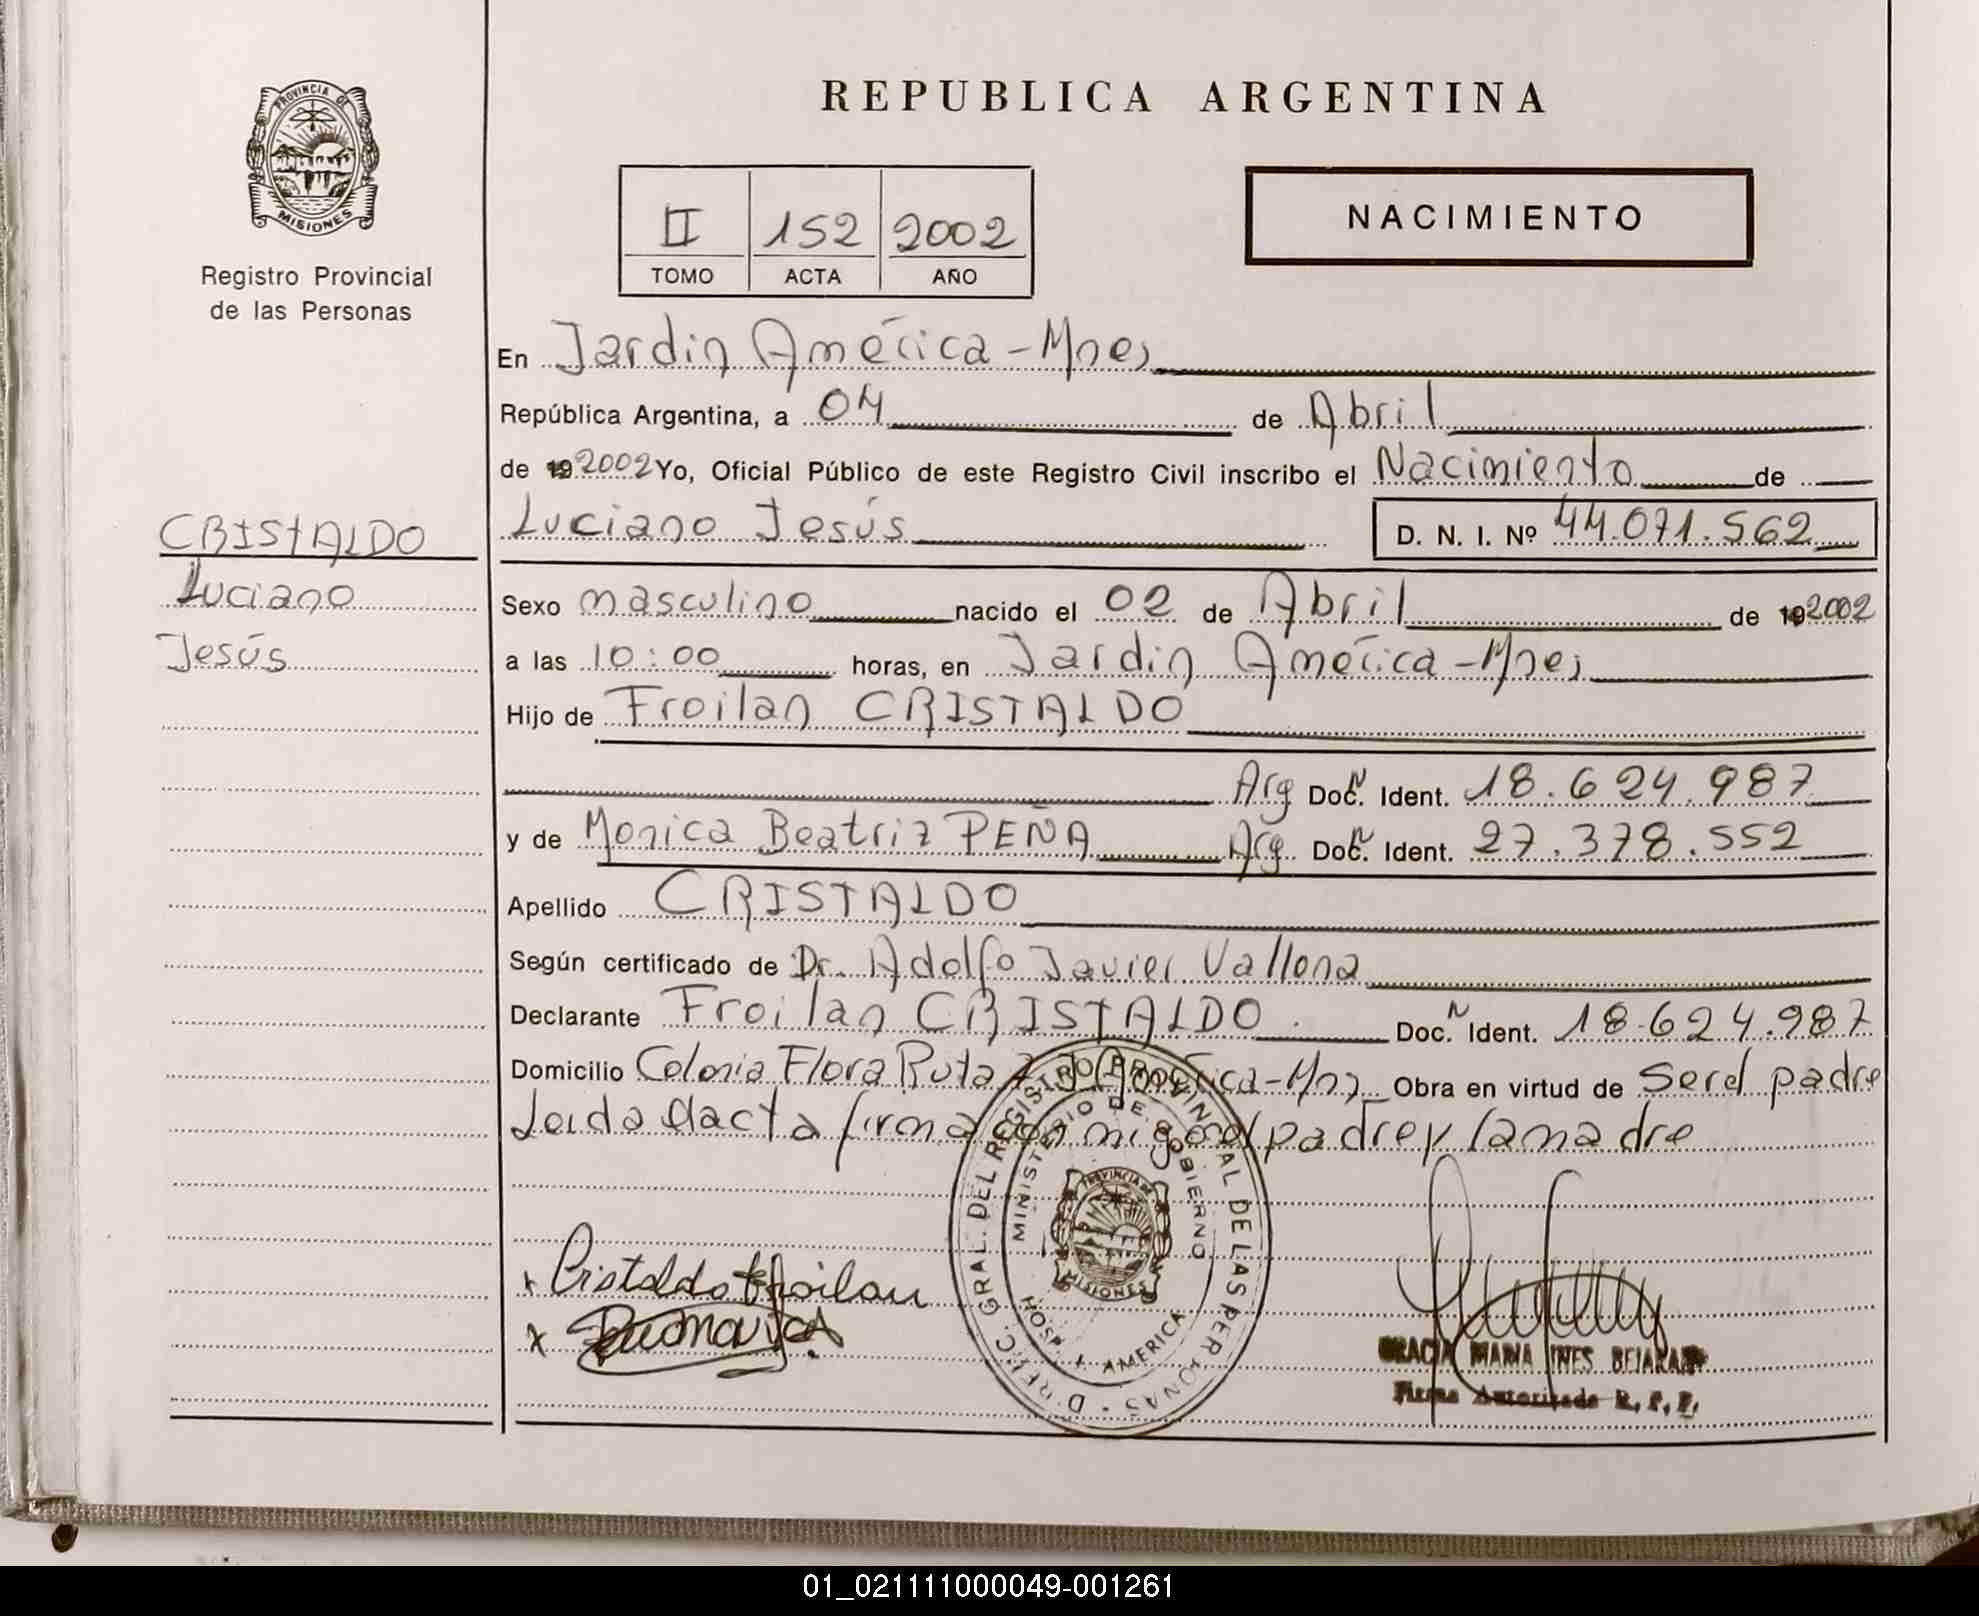 REPUBLICA ARGENTINA
PROVINCIA DE
MISIONES
Registro Provincial
de las Personas
II 152 2002
TOMO ACTA AÑO
NACIMIENTO
En Jardin América - Mnes
República Argentina, a 04 de Abril
de 19 2002 Yo, Oficial Público de este Registro Civil inscribo el Nacimiento de
CRISTALDO
Luciano
Jesús
Luciano Jesús D. N. I. Nº 44.071.562
Sexo masculino nacido el 02 de Abril de 19 2002
a las 10:00 horas, en Jardin América - Mnes
Hijo de Froilan CRISTALDO
Arg Doc. N Ident. 18.624.987
y de Monica Beatriz PEÑA Arg Doc. N Ident. 27.378.552
Apellido CRISTALDO
Según certificado de Dr. Adolfo Javier Vallona
Declarante Froilan CRISTALDO. Doc. N Ident. 18.624.987
Domicilio Colonia Flora Ruta 7 J. América - Mns Obra en virtud de ser el padre
Leida el acta firman con migo el padre y la madre
DIREC. GRAL. DEL REGISTRO PROVINCIAL DE LAS PERSONAS
MINISTERIO DE GOBIERNO
PROVINCIA DE
MISIONES
HOSP. J. AMERICA
x Cristaldo Froilan
x
GRACIA MARIA INES BEJARANO
Firma Autorizada R. P. P.
01_021111000049-001261